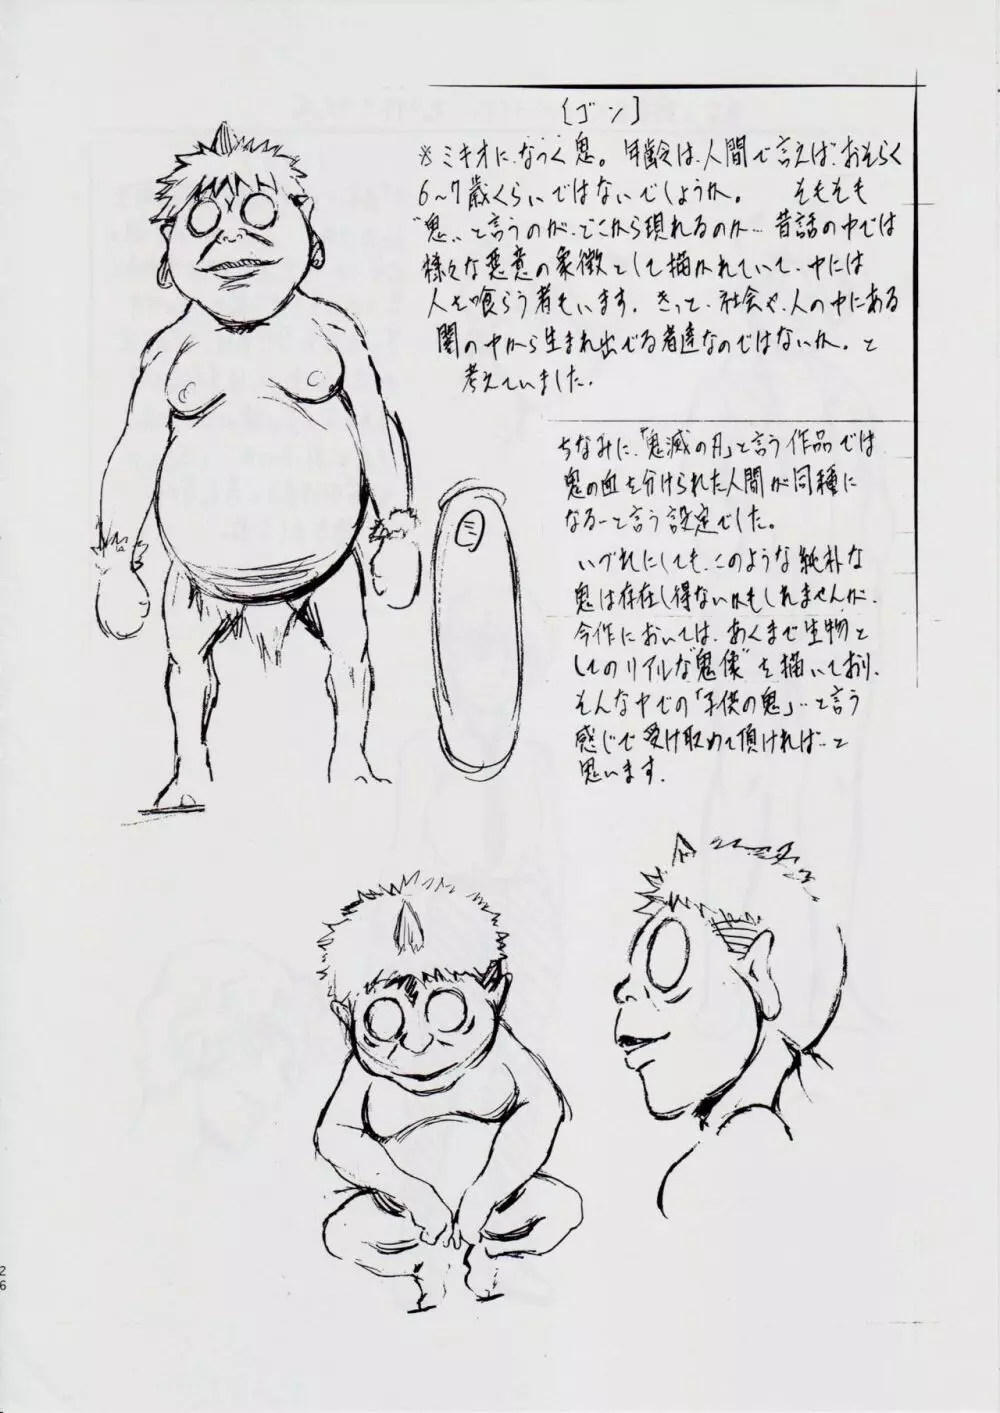 〔ゴン〕
※ミキオになつく鬼。年齢は、人間で言えば、おそらく
6〜7歳くらいではないでしょうか。 そもそも
"鬼"と言うのが、どこから現れるのか…昔話の中では
様々な悪意の象徴として描かれていて、中には
人を喰らう者もいます。きっと、社会や、人の中にある
闇の中から生まれ出でる者達なのではないか。と
考えていました。
ちなみに、「鬼滅の刃」と言う作品では
鬼の血を分けられた人間が同種に
なる…と言う設定でした。
いづれにしても、このような純朴な
鬼は存在し得ないかもしれませんが、
今作においては、あくまで生物と
してのリアルな"鬼像"を描いており、
そんな中での「子供の鬼」…と言う
感じで受け取めて頂ければ…と
思います。
ミ
26